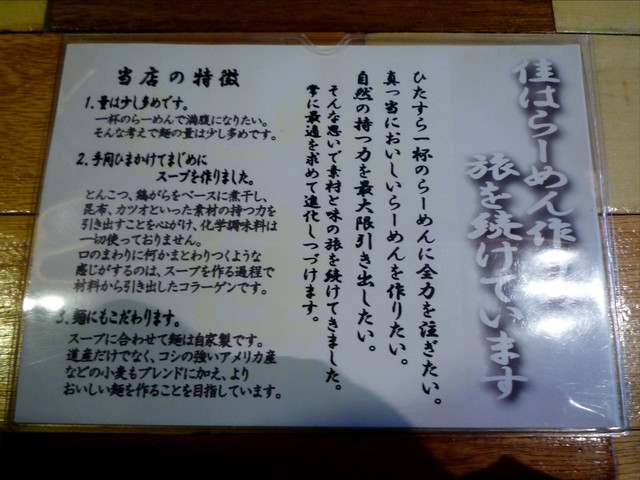 佳はらーめん作
旅を続けています
ひたすら一杯のらーめんに全力を注ぎたい。
真っ当においしいらーめんを作りたい。
自然の持つ力を最大限引き出したい。
そんな思いで素材と味の旅を続けてきました。
常に最適を求めて進化しつづけます。
当店の特徴
1.量は少し多めです。
一杯のらーめんで満腹になりたい。
そんな考えで麺の量は少し多めです。
2.手間ひまかけてまじめに
スープを作りました。
とんこつ、鶏がらをベースに煮干し、
昆布、カツオといった素材の持つ力を
引き出すことを心がけ、化学調味料は
一切使っておりません。
口のまわりに何かまとわりつくような
感じがするのは、スープを作る過程で
材料から引き出したコラーゲンです。
3.麺にもこだわります。
スープに合わせて麺は自家製です。
道産だけでなく、コシの強いアメリカ産
などの小麦もブレンドに加え、より
おいしい麺を作ることを目指しています。